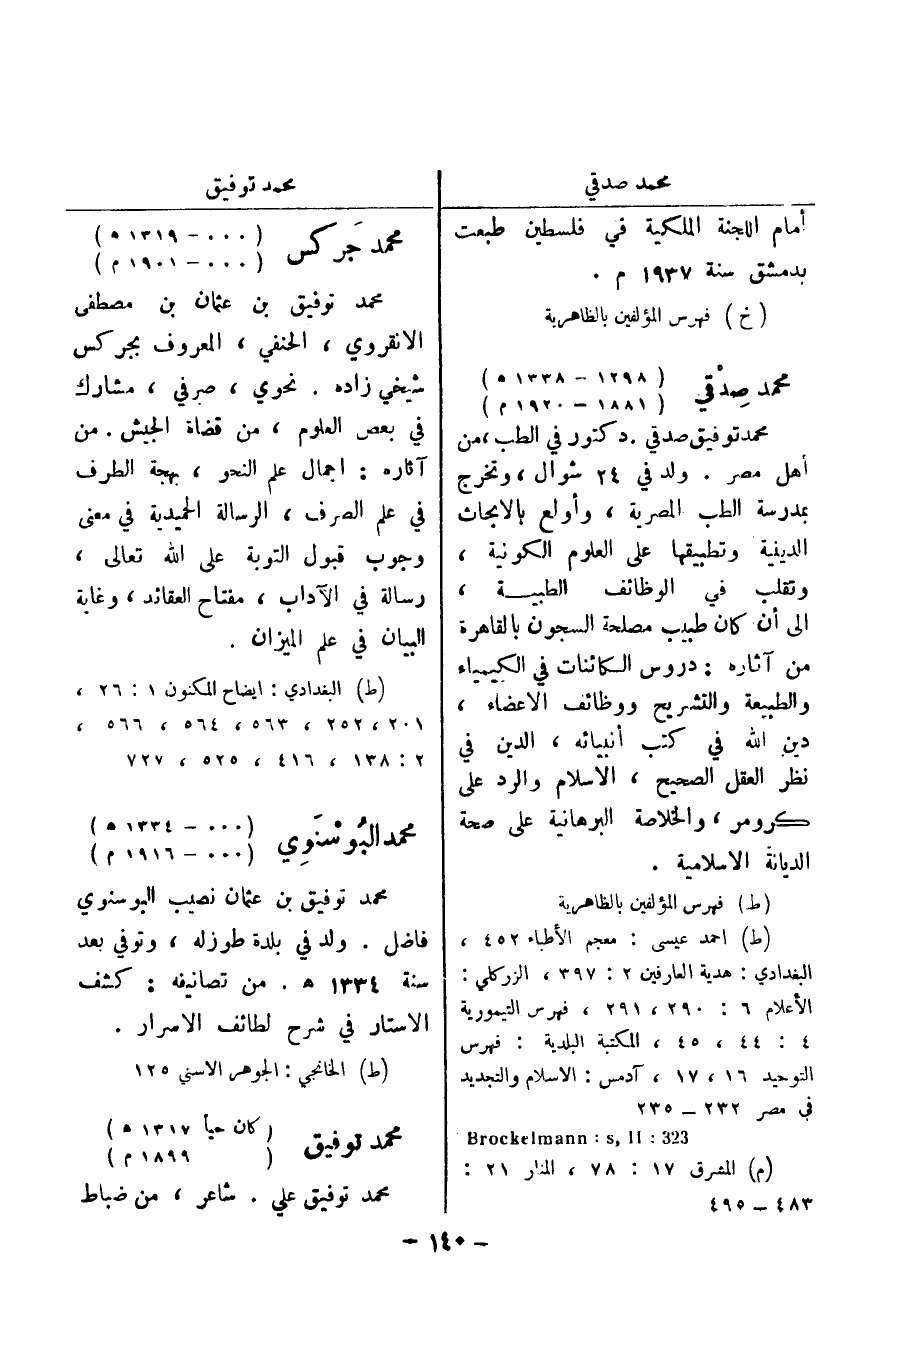 محمد صدقي
أمام اللجنة الملكية في فلسطين طبعت
بدمشق سنة ١٩٣٧ م .
( خ ) فهرس المؤلفين بالظاهرية
محمد صِدْقي
( ١٢٩٨ – ١٣٣٨ ه )
( ١٨٨١ – ١٩٢٠ م )
محمد توفيق صدقي . دكتور في الطب ، من
أهل مصر . ولد في ٢٤ شوال ، وتخرج
بمدرسة الطب المصرية ، وأولع بالابحاث
الدينية وتطبيقها على العلوم الكونية ،
وتقلب في الوظائف الطبيـــة ،
الى أن كان طبيب مصلحة السجون بالقاهرة
من آثاره : دروس الكائنات في الكيمياء
والطبيعة والتشريح ووظائف الاعضاء ،
دين الله في كتب أنبيائه ، الدين في
نظر العقل الصحيح ، الاسلام والرد على
كرومر ، والخلاصة البرهانية على صحة
الديانة الاسلامية .
(ط) فهرس المؤلفين بالظاهرية
(ط) احمد عيسى : معجم الأطباء ٤٥٢ ،
البغدادي : هدية العارفين ٢ : ٣٩٧ ، الزركلي :
الأعلام ٦ : ٢٩٠ ، ٢٩١ ، فهرس التيمورية
٤ : ٤٤ ، ٤٥ ، المكتبة البلدية : فهرس
التوحيد ١٦ ، ١٧ ، آدمس : الاسلام والتجديد
في مصر ٢٣٢ – ٢٣٥
Brockelmann : s, II : 323
(م) المشرق ١٧ : ٧٨ ، المنار ٢١ :
٤٨٣ – ٤٩٥
محمد توفيق
محمد جَركس
( ٠٠٠ – ١٣١٩ ه )
( ٠٠٠ – ١٩٠١ م )
محمد توفيق بن عثمان بن مصطفى
الانقروي ، الحنفي ، المعروف بجركس
شيخي زاده . نحوي ، صرفي ، مشارك
في بعض العلوم ، من قضاة الجيش . من
آثاره : اجمال علم النحو ، بهجة الطرف
في علم الصرف ، الرسالة الحميدية في معنى
وجوب قبول التوبة على الله تعالى ،
رسالة في الآداب ، مفتاح العقائد ، وغاية
البيان في علم الميزان .
(ط) البغدادي : ايضاح المكنون ١ : ٢٦ ،
٢٠١ ، ٢٥٢ ، ٥٦٣ ، ٥٦٤ ، ٥٦٦ ،
٢ : ١٣٨ ، ٤١٦ ، ٥٢٥ ، ٧٢٧
محمد البُوسْنَوِي
( ٠٠٠ – ١٣٣٤ ه )
( ٠٠٠ – ١٩١٦ م )
محمد توفيق بن عثمان نصيب البوسنوي
فاضل . ولد في بلدة طوزله ، وتوفي بعد
سنة ١٣٣٤ ه . من تصانيفه : كشف
الاستار في شرح لطائف الاسرار .
(ط) الخانجي : الجوهر الاسني ١٢٥
محمد توفيق
( كان حياً ١٣١٧ ه )
( ١٨٩٩ م )
محمد توفيق علي . شاعر ، من ضباط
– ١٤٠ –